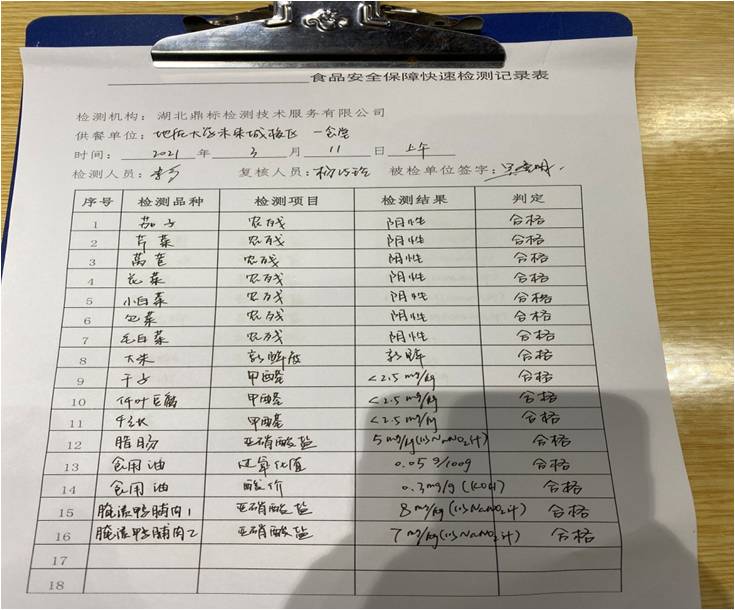 食品安全保障快速检测记录表
检测机构：湖北鼎标检测技术服务有限公司
供餐单位：地质大学未来城校区 一食堂
时间：2021 年 3 月 11 日 上午
检测人员： 复核人员： 被检单位签字：
序号 检测品种 检测项目 检测结果 判定
1 茄子 农残 阴性 合格
2 芹菜 农残 阴性 合格
3 莴苣 农残 阴性 合格
4 花菜 农残 阴性 合格
5 小白菜 农残 阴性 合格
6 包菜 农残 阴性 合格
7 毛白菜 农残 阴性 合格
8 大米 新鲜度 新鲜 合格
9 干子 甲醛 <2.5 mg/kg 合格
10 千叶豆腐 甲醛 <2.5 mg/kg 合格
11 千张 甲醛 <2.5 mg/kg 合格
12 腊肠 亚硝酸盐 5 mg/kg(以NaNO2计) 合格
13 食用油 过氧化值 0.05 g/100g 合格
14 食用油 酸价 0.3mg/g (KOH) 合格
15 腌渍鸭脯肉1 亚硝酸盐 8 mg/kg(以NaNO2计) 合格
16 腌渍鸭脯肉2 亚硝酸盐 7 mg/kg(以NaNO2计) 合格
17
18